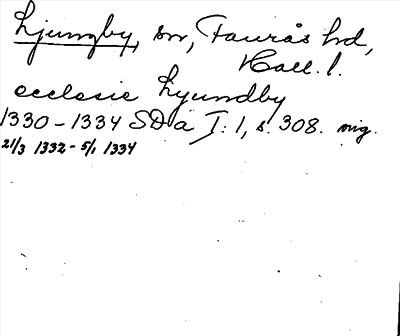 Ljungby, sn, Faurås hd,
Hall. l.
ecclesie Lyundby
1330-1334 SDa I: 1, s. 308. mig.
21/3 1332 - 5/1 1334